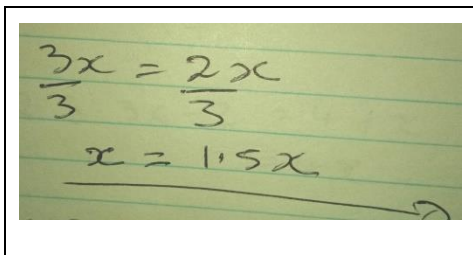 3x/3 = 2x/3
x = 1.5x